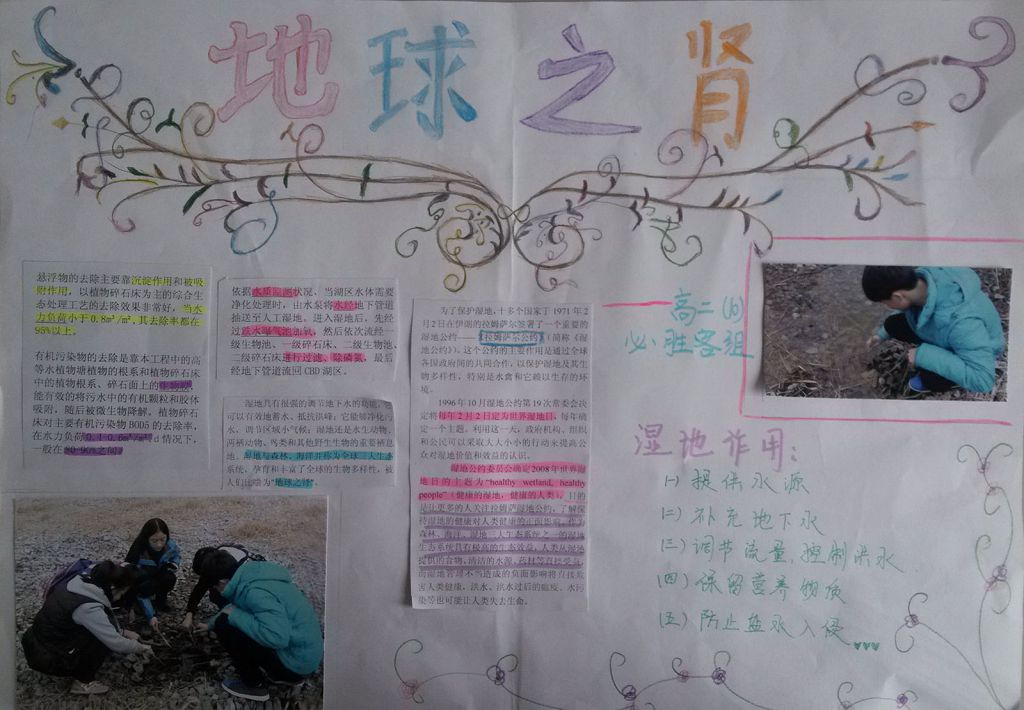 地球之肾
悬浮物的去除主要靠沉淀作用和被吸
附作用，以植物碎石床为主的综合生
态处理工艺的去除效果非常好，当水
力负荷小于0.8m³/m²,其去除率都在
95%以上。
有机污染物的去除是靠本工程中的高
等水植物塘植物的根系和植物碎石床
中的植物根系、碎石面上的生物膜，
能有效的将污水中的有机颗粒和胶体
吸附，随后被微生物降解。植物碎石
床对主要有机污染物BOD5的去除率，
在水力负荷0.1-0.6m³/m²d情况下，
一般在80-90%之间。
依据水质监测状况、当湖区水体需要
净化处理时，由水泵将水经地下管道
抽送至人工湿地。进入湿地后，先经
过跌水曝气池加氧，然后依次流经一
级生物池、一级碎石床、二级生物池、
二级碎石床进行过滤、除磷氮，最后
经地下管道流回CBD湖区。
湿地具有很强的调节地下水的功能，它
可以有效地蓄水、抵抗洪峰；它能够净化污
水，调节区域小气候；湿地还是水生动物、
两栖动物、鸟类和其他野生生物的重要栖息
地。湿地与森林、海洋并称为全球三大生态
系统，孕育和丰富了全球的生物多样性，被
人们比喻为“地球之肾”
为了保护湿地,十多个国家于1971年2
月2日在伊朗的拉姆萨尔签署了一个重要的
湿地公约——《拉姆萨尔公约》(简称《湿
地公约》)。这个公约的主要作用是通过全球
各国政府间的共同合作，以保护湿地及其生
物多样性，特别是水禽和它赖以生存的环
境。
1996年10月湿地公约第19次常委会决
定将每年2月2日定为世界湿地日，每年确
定一个主题。利用这一天，政府机构、组织
和公民可以采取大大小小的行动来提高公
众对湿地价值和效益的认识。
湿地公约委员会确定2008年世界湿
地日的主题为“healthy wetland, healthy
people”（健康的湿地，健康的人类），目的
是让更多的人关注拉姆萨湿地公约，了解保
持湿地的健康对人类健康的正面影响。作为
森林、海洋、湿地三大生态系统之一的湿地
生态系统具有极高的生态效益，人类从湿地
提供的食物、清洁的水源、药材等直接受益，
而湿地管理不当造成的负面影响将直接危
害人类健康，洪水、洪水过后的瘟疫、水污
染等也可能让人类失去生命。
高二(6)
必胜客组
湿地作用：
(一)提供水源
(二)补充地下水
(三)调节流量,控制洪水
(四)保留营养物质
(五)防止盐水入侵